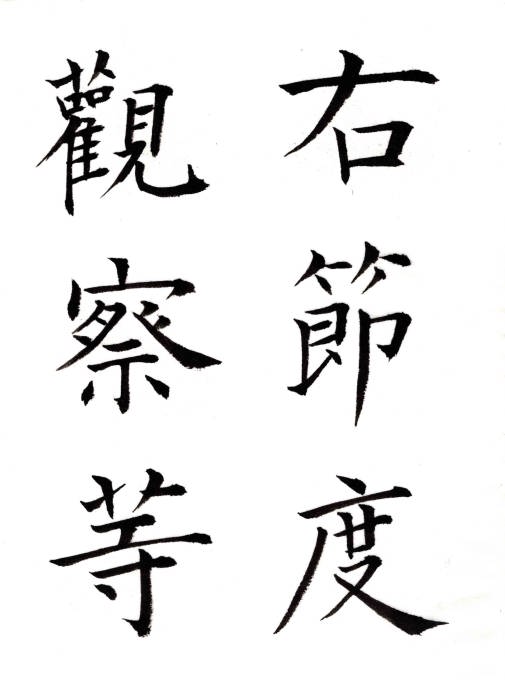 右節度
觀察等